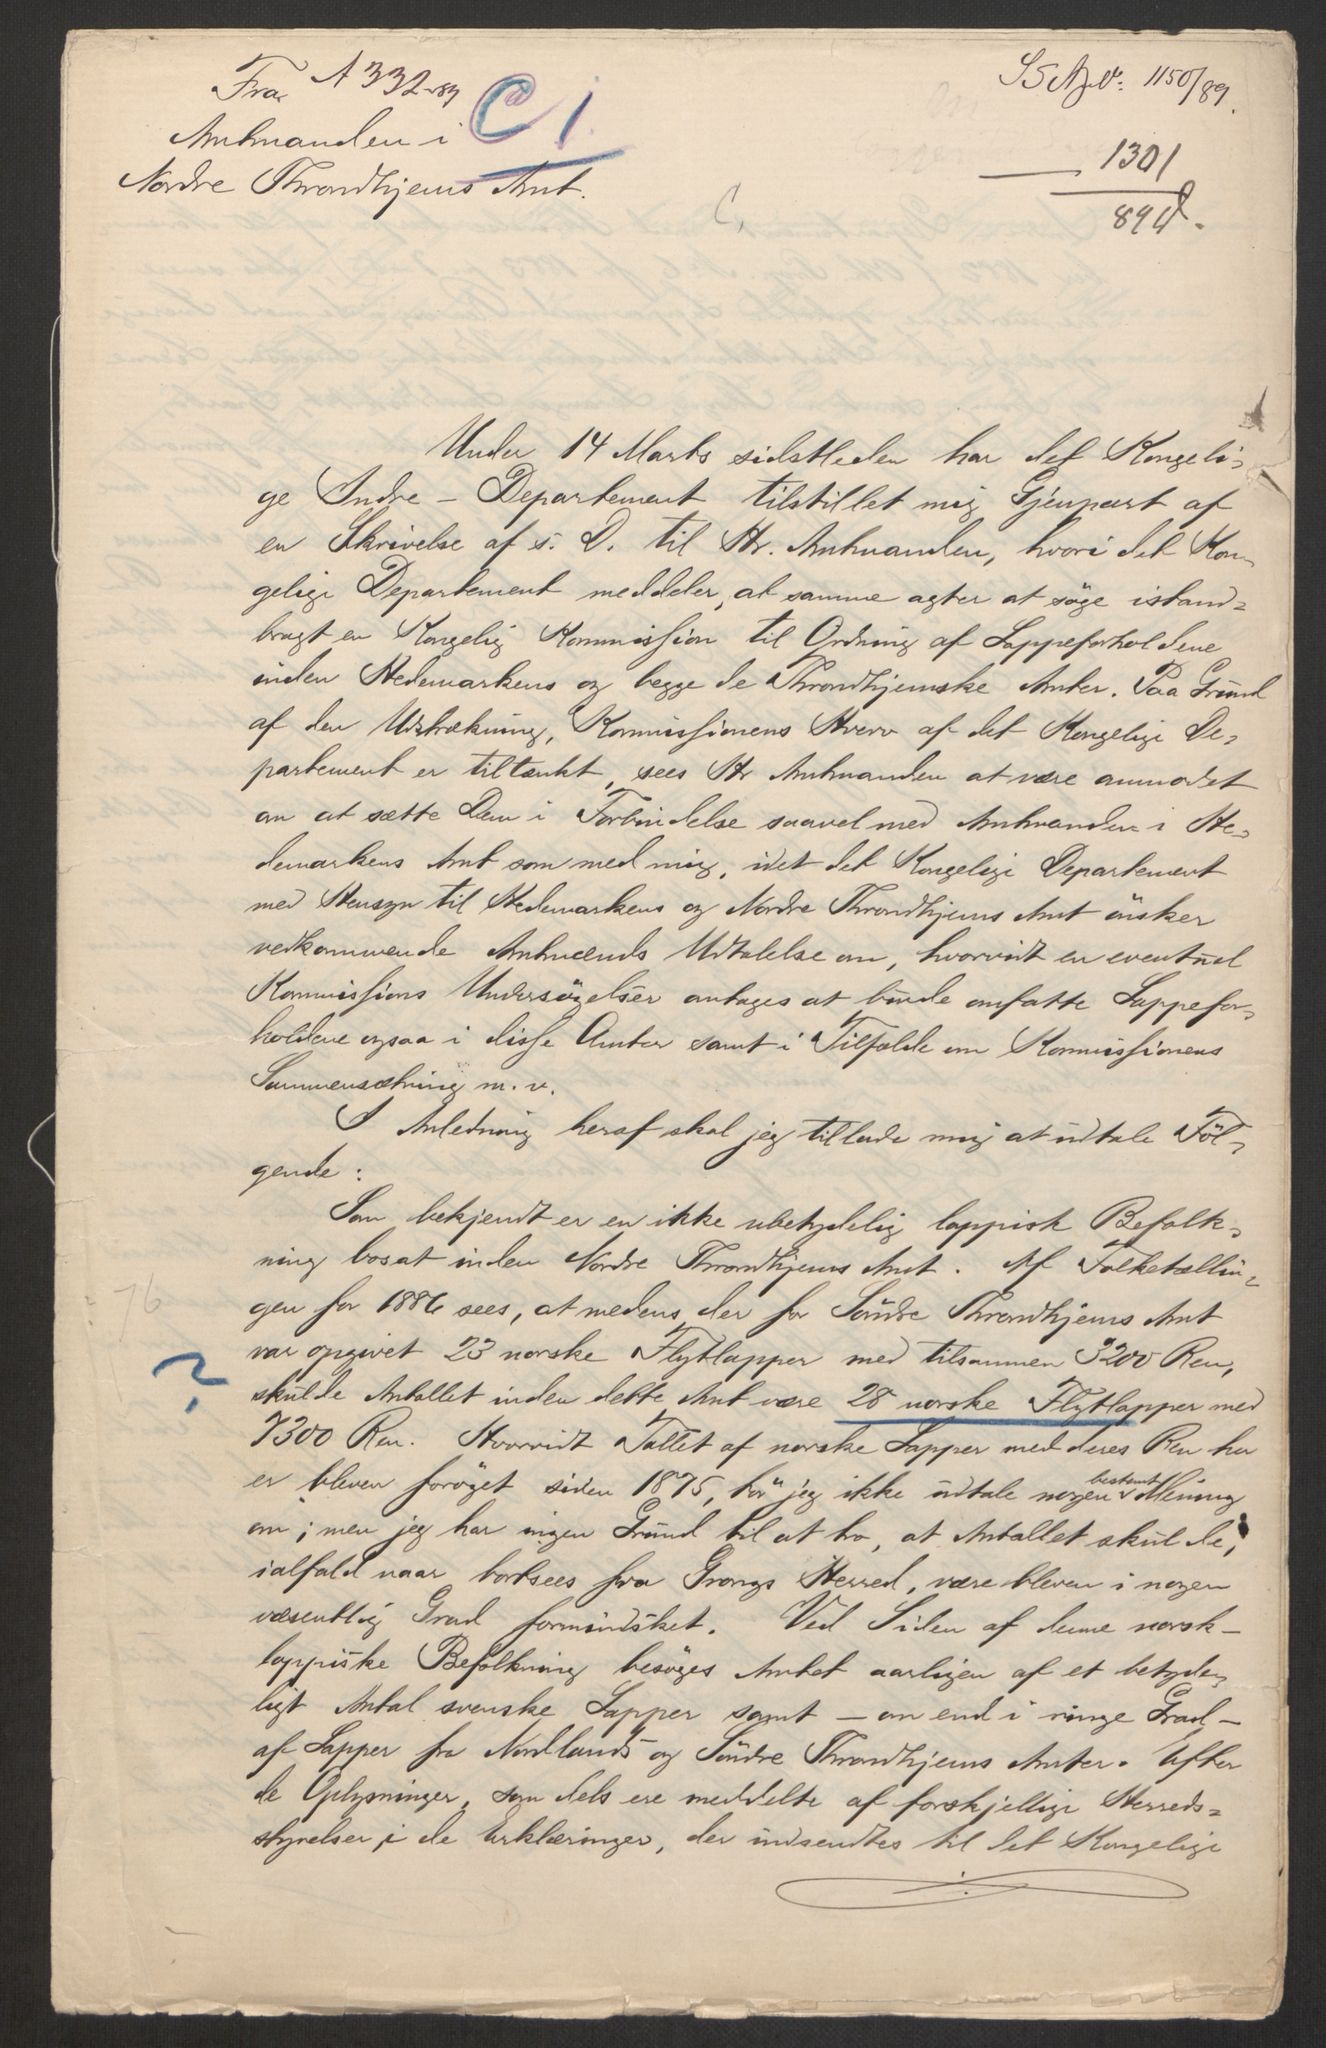 Fra A 332-89 C 1.
Amtmanden i
Nordre Throndhjems Amt.
1150/89.
1301
89 d.
C,
Under 14 Marts sidstleden har det Kongeli-
ge Indre-Departement tilstillet mig Gjenpart af
en Skrivelse af s. D. til Hr. Amtmanden, hvori det Kon-
gelige Departement meddeler, at samme agter at søge istand-
bragt en Kongelig Kommission til Ordning af Lappeforholdene
inden Hedemarkens og begge de Throndhjemske Amter. Paa Grund
af den Udstrækning, Kommissionens Hverv af det Kongelige De-
partement er tiltænkt, sees Hr Amtmanden at være anmodet
om at sætte Dem i Forbindelse saavel med Amtmanden i He-
demarkens Amt som med mig, idet det Kongelige Departement
med Hensyn til Hedemarkens og Nordre Throndhjems Amt ønsker
vedkommende Amtmænds Udtalelse om, hvorvidt en eventuel
Kommissions Undersøgelser antages at burde omfatte Lappefor-
holdene ogsaa i disse Amter samt i Tilfælde om Kommissionens
Sammensætning m. v.
I Anledning heraf skal jeg tillade mig at udtale Føl-
gende:
Som bekjendt er en ikke ubetydelig lappisk Befolk-
ning bosat inden Nordre Throndhjems Amt. Af Folketællin-
76
gen for 1886 sees, at medens der for Søndre Throndhjems Amt
var opgivet 23 norske Flytlapper med tilsammen 3200 Ren,
?
skulde Antallet inden dette Amt være 28 norske Flytlapper med
7300 Ren. Hvorvidt Tallet af norske Lapper med deres Ren her
er bleven forøget siden 1875, tør jeg ikke udtale nogen bestemt Mening
om; men jeg har ingen Grund til at tro, at Antallet skulde,
ialfald naar bortsees fra Grongs Herred, være bleven i nogen
væsentlig Grad formindsket. Ved Siden af denne norsk-
lappiske Befolkning besøges Amtet aarligen af et betyde-
ligt Antal svenske Lapper samt - om end i ringe Grad -
af Lapper fra Nordlands og Søndre Throndhjems Amter. Efter
de Oplysninger, som dels ere meddelte af forskjellige Herreds-
styrelser i de Erklæringer, der indsendtes til det Kongelige